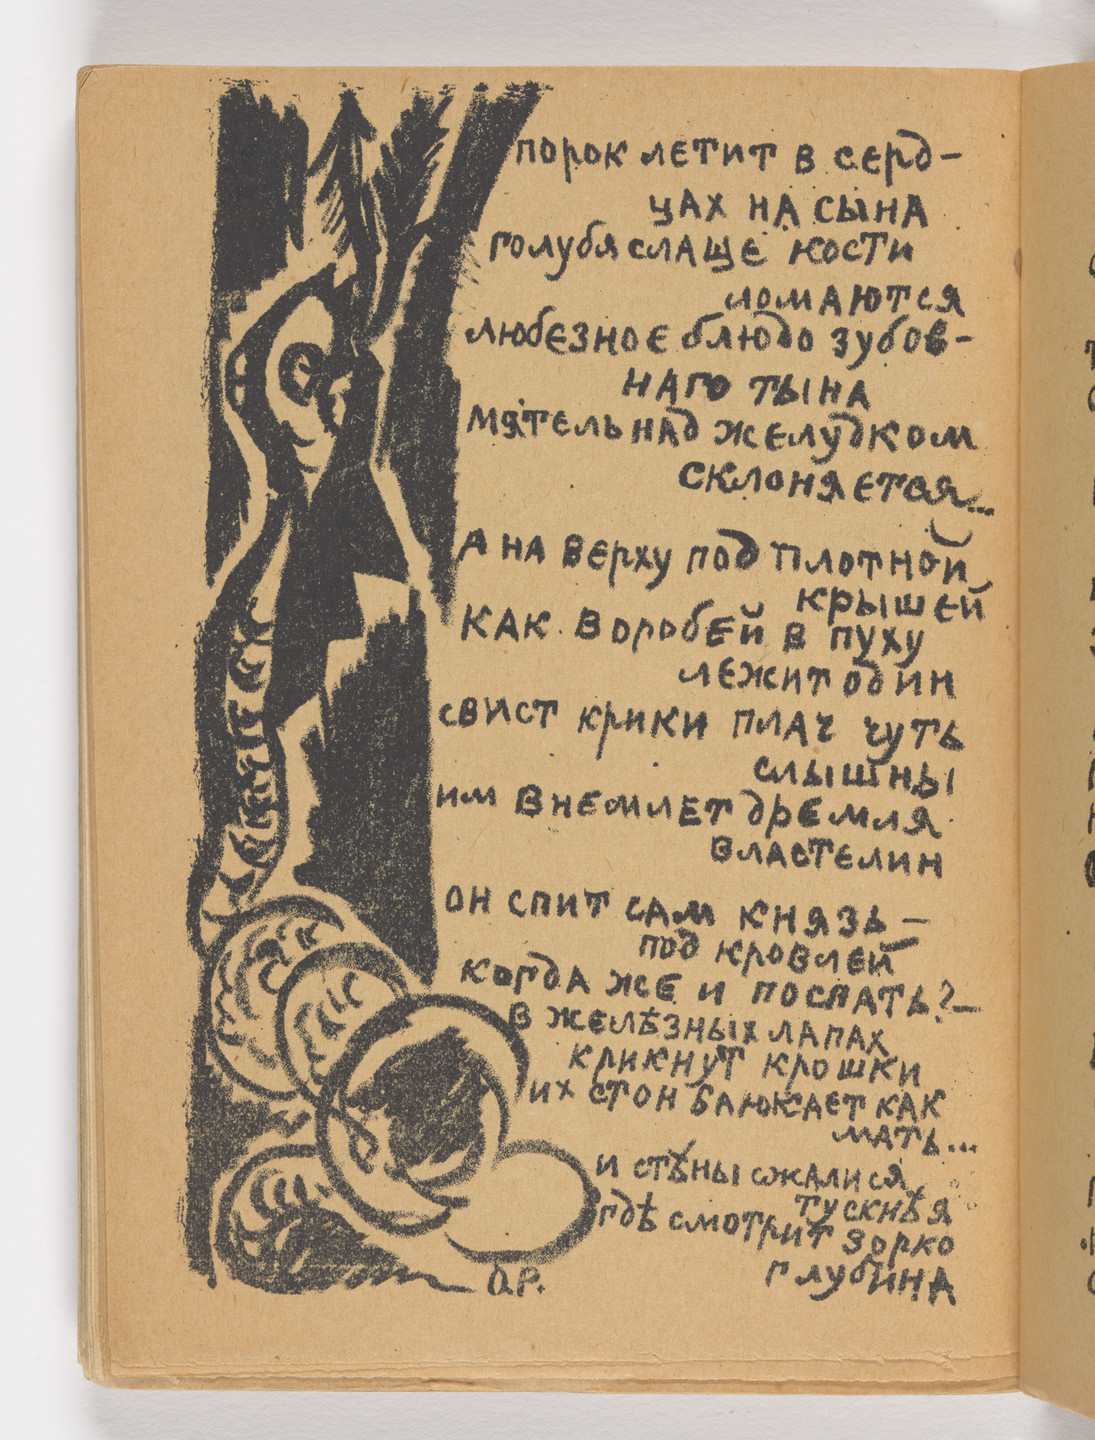 порок летит в серд-
цах на сына
голубя слаще кости
ломаются
любезное блюдо зубов-
наго тына
мятель над желудком
склоняется...
А на верху под плотной
крышей
как воробей в пуху
лежит один
свист крики плач чуть
слышны
им внемлет дремля
властелин
он спит сам князь —
под кровлей
когда же и поспать? —
в желѣзных лапах
крикнут крошки
их стон баюкает как
мать...
и стѣны сжалися
тускнѣя
гдѣ смотрит зорко
глубина
О.Р.